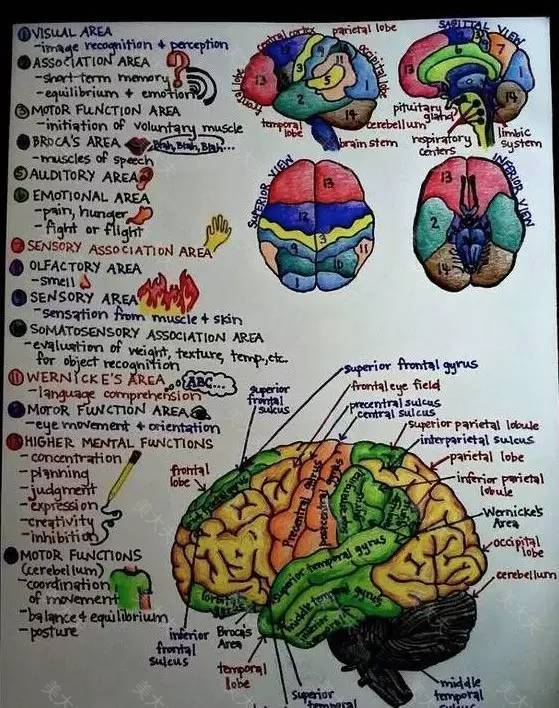 ① VISUAL AREA
-image recognition + perception
② ASSOCIATION AREA
-short term memory
-equilibrium + emotion
③ MOTOR FUNCTION AREA
-initiation of voluntary muscle
BROCA'S AREA
Blah, Blah, Blah...
-muscles of speech
⑤ AUDITORY AREA
⑥ EMOTIONAL AREA
-pain, hunger
-fight or flight
⑦ SENSORY ASSOCIATION AREA
OLFACTORY AREA
-smell
⑨ SENSORY AREA
-sensation from muscle + skin
SOMATOSENSORY ASSOCIATION AREA
-evaluation of weight, texture, temp., etc.
for object recognition
⑪ WERNICKE'S AREA
ABC...
-language comprehension
MOTOR FUNCTION AREA
-eye movement + orientation
HIGHER MENTAL FUNCTIONS
-concentration
-planning
-judgment
-expression
-creativity
-inhibition
MOTOR FUNCTIONS
(cerebellum)
-coordination
of movement
-balance + equilibrium
-posture
central cortex
parietal lobe
occipital lobe
frontal lobe
temporal lobe
cerebellum
brain stem
13
2
5
14
1
SAGITTAL VIEW
13
6
7
1
14
pituitary gland
respiratory centers
limbic system
SUPERIOR VIEW
13
12
3
9
11
10
1
INFERIOR VIEW
13
2
14
superior frontal gyrus
frontal eye field
superior frontal sulcus
precentral sulcus
central sulcus
superior parietal lobule
interparietal sulcus
parietal lobe
frontal lobe
inferior parietal lobule
Wernicke's Area
occipital lobe
cerebellum
Precentral gyrus
postcentral gyrus
Superior temporal gyrus
middle temporal gyrus
inferior frontal sulcus
Broca's Area
temporal lobe
superior temporal
middle temporal